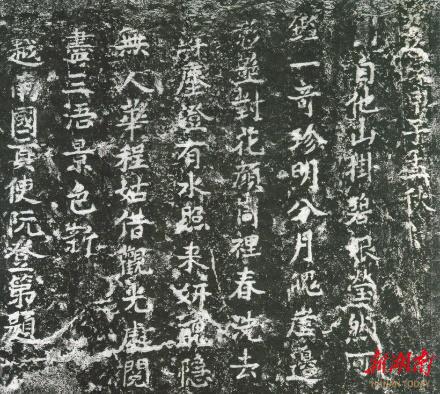 子孟秋
自他山樹碧根瑩然可
鑑一奇珍明分月魄崖邊
艷對花顏裡春洗去
塵澄有水照来妍醜隐
無人華程姑借觀光處閱
盡三浯景色新
越南國貢使阮登第題
新湖南
HUNAN TODAY